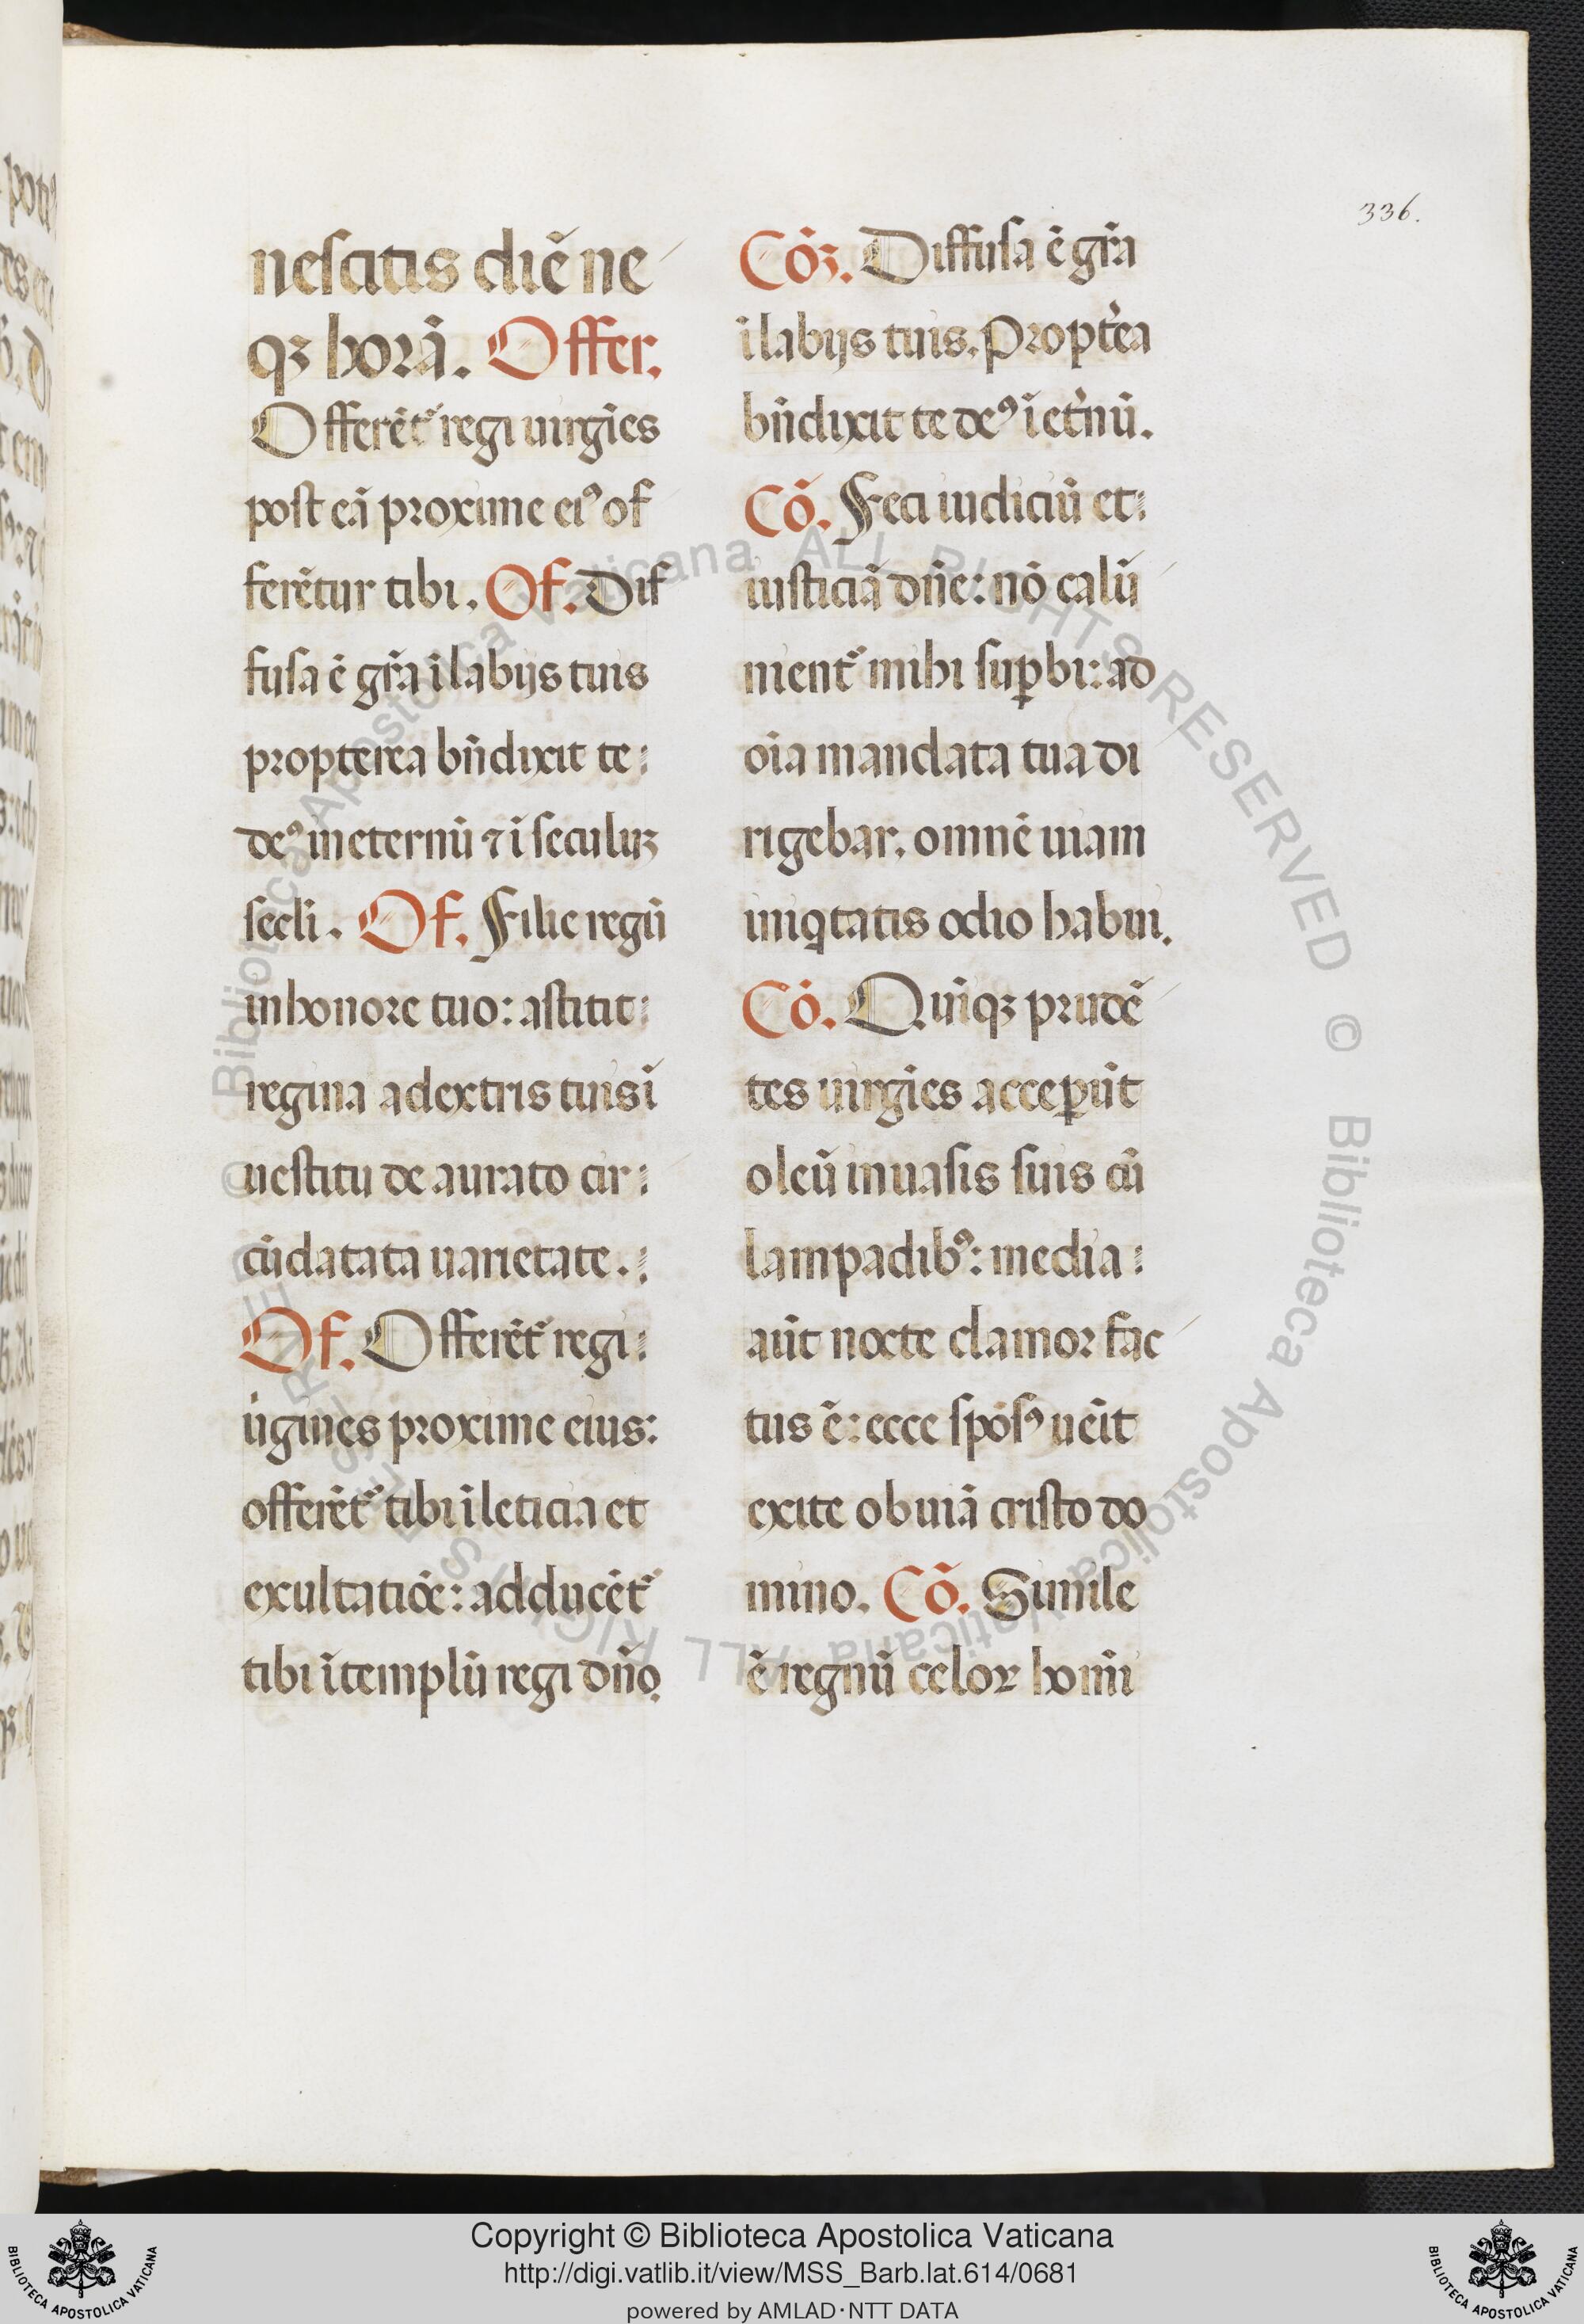 336.
nescitis diē ne
qꝫ horā. Offer.
Offerēt᷑ regi uirgīes
post eā proxime eiꝰ of
ferētur tibi. Of. Dif
fusa ē gr̄a ī labijs tuis
propterea bn̄dixit te
deꝰ in eternū ⁊ ī seculuꝫ
sēcli. Of. Filie regū
in honore tuo: astitit
regina adextris tuis ī
uestitu de aurato cir
cūdatata uarietate.
Of. Offerēt᷑ regi
uīgines proxime eius:
offerēt᷑ tibi ī leticia et
exultatiōe: adducēt᷑
tibi ī templū regi dn̄o.
Cōꝫ. Diffusa ē gr̄a
ī labijs tuis. Propt̄ea
bn̄dixit te deꝰ ī et̄nū.
Cō. Feci iudiciū et
iusticiā dn̄e: nō calū
nient᷑ mihi suꝑbi: ad
oīa mandata tua di
rigebar. omnē uiam
iniqͥtatis odio habui.
Cō. Quīqꝫ prudē
tes uirgīes acceꝑūt
oleū in uasis suis cū
lampadibꝰ: media
aūt nocte clamor fac
tus ē: ecce spōsꝰ uēit
exite obuiā cristo do
mino. Cō. Simile
ē regnū celoꝝ homī
Copyright © Biblioteca Apostolica Vaticana
http://digi.vatlib.it/view/MSS_Barb.lat.614/0681
powered by AMLAD·NTT DATA
BIBLIOTECA APOSTOLICA VATICANA
BIBLIOTECA APOSTOLICA VATICANA
© Biblioteca Apostolica Vaticana ALL RIGHTS RESERVED
© Biblioteca Apostolica Vaticana ALL RIGHTS RESERVED